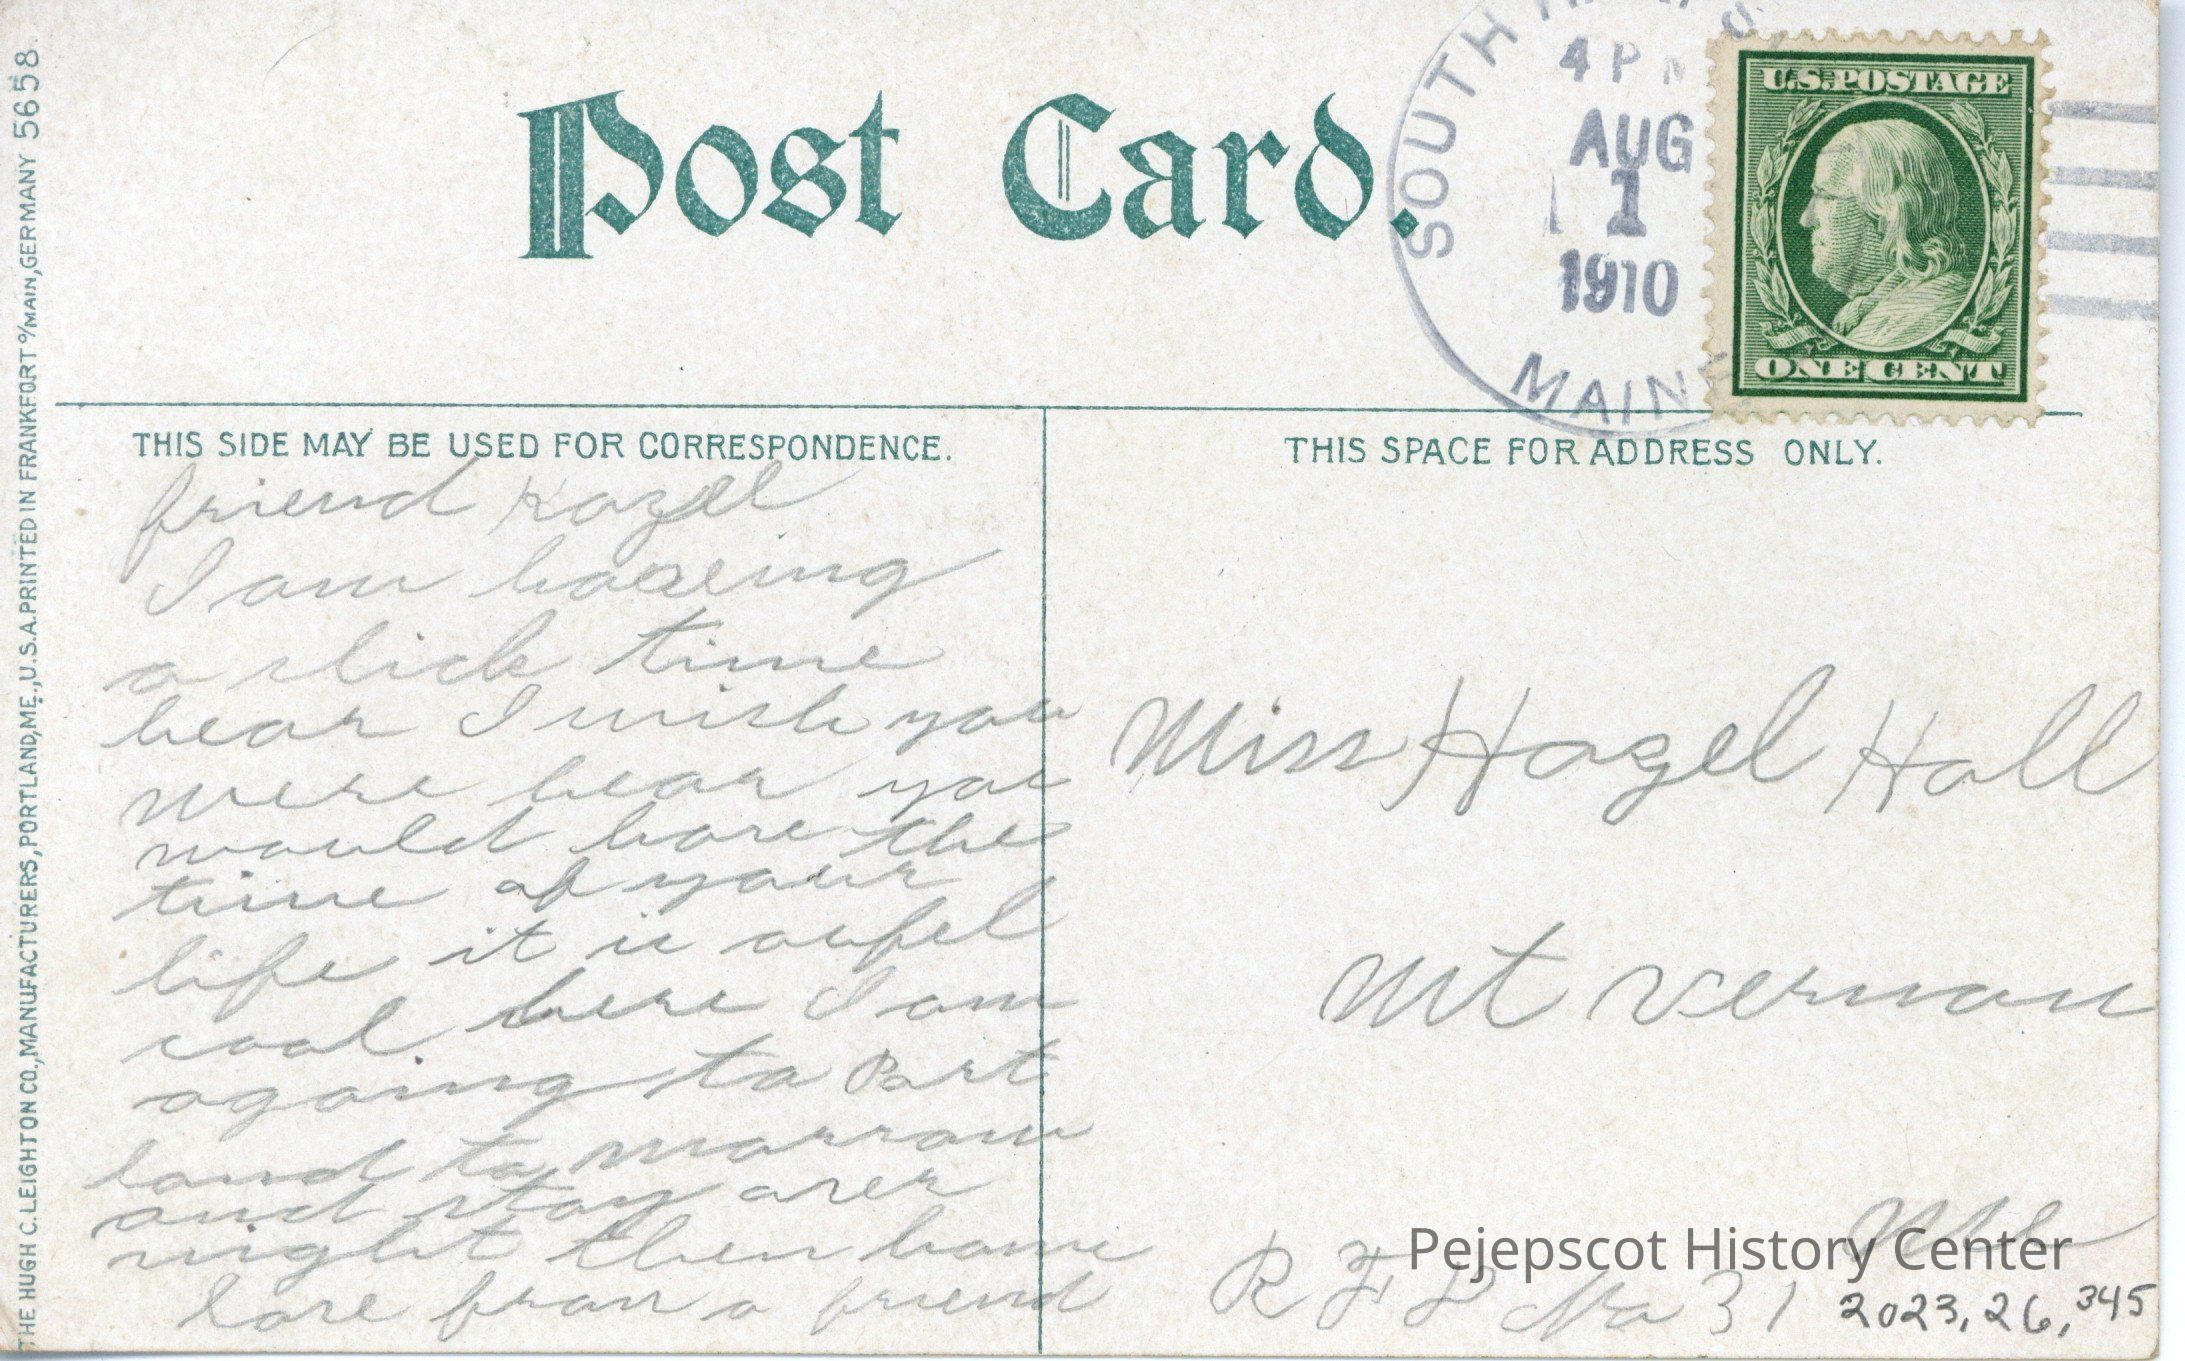 Post Card.
SOUTH
4 P M
AUG
1
1910
MAINE
U.S. POSTAGE
ONE CENT
THIS SIDE MAY BE USED FOR CORRESPONDENCE.
friend Hazel
I am haveing
a slick time
hear I wish you
were hear you
would have the
time of your
life it is aufel
cool here I am
agoing to Port
land to morrow
and stay over
night then home
Love from a friend
THIS SPACE FOR ADDRESS ONLY.
Miss Hazel Hall
Mt Vernon
Me
R F D No 31
Pejepscot History Center
2023.26.345
THE HUGH C. LEIGHTON CO., MANUFACTURERS, PORTLAND, ME., U.S.A. PRINTED IN FRANKFORT o/MAIN, GERMANY 5658.